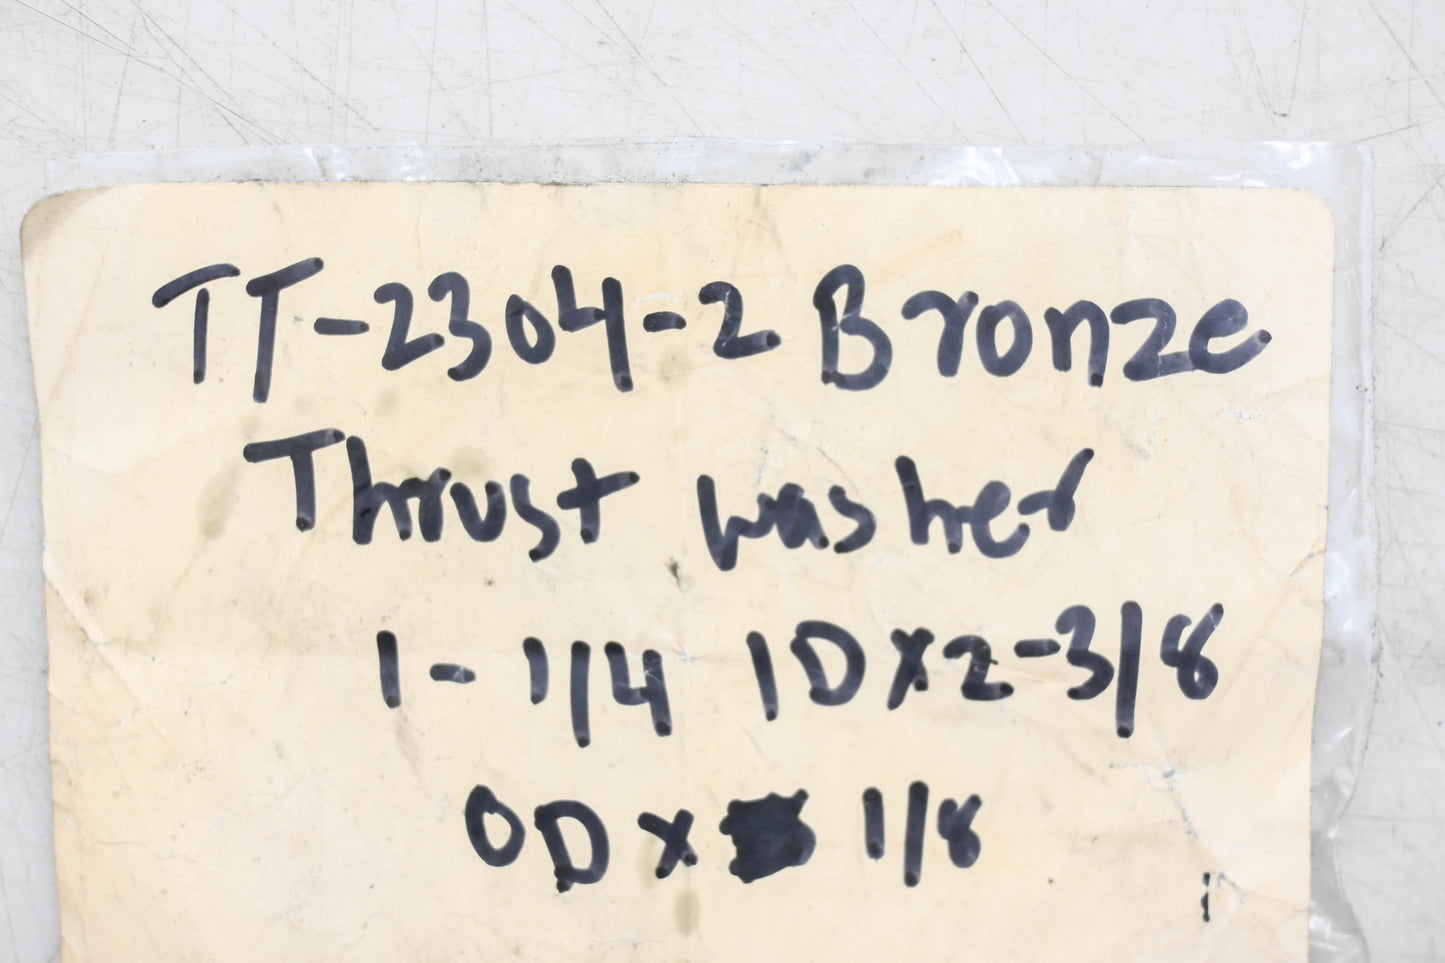 TT-2304-2 Bronze
Thrust washer
1-1/4 ID x 2-3/8
OD x 1/8